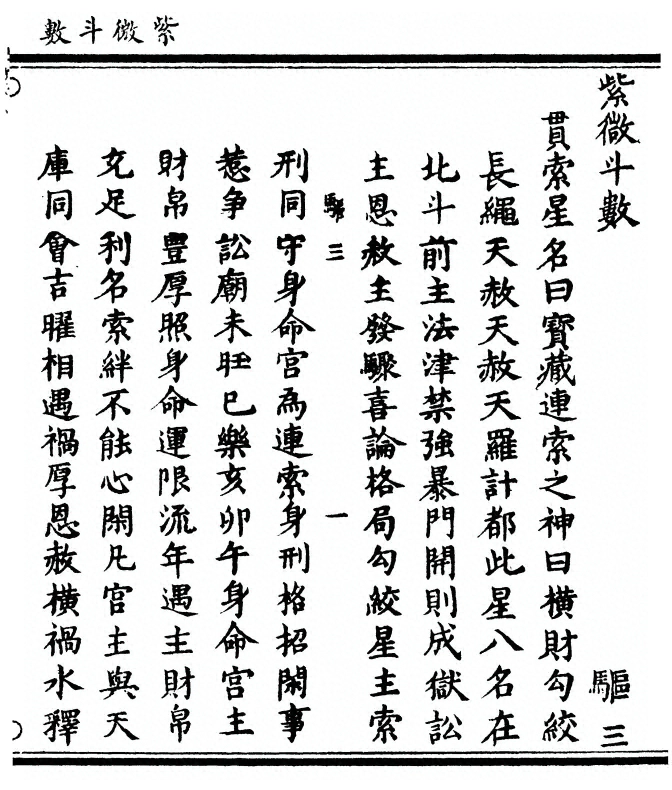 紫微斗數
紫微斗數 驅三
貫索星名曰寶藏連索之神曰橫財勾絞
長繩天赦天赦天羅計都此星八名在
北斗前主法津禁強暴門開則成獄訟
主恩赦主發驟喜論格局勾絞星主索
驅三 一
刑同守身命宮為連索身刑格招閑事
惹爭訟廟未旺巳樂亥卯午身命宮主
財帛豐厚照身命運限流年遇主財帛
充足利名索絆不能心閑凡宮主與天
庫同會吉曜相遇禍厚恩赦橫禍水釋